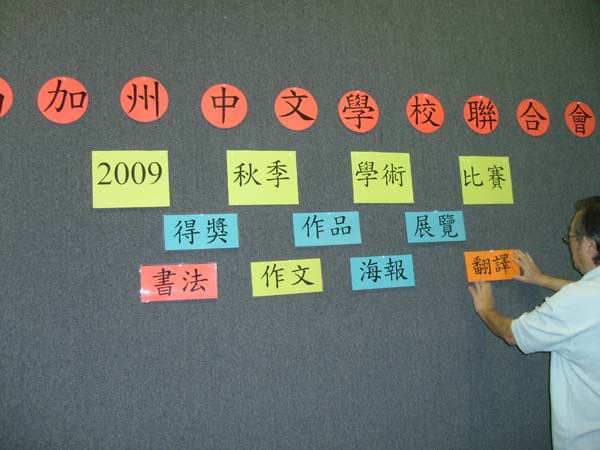 加州中文學校聯合會
2009 秋季 學術 比賽
得獎 作品 展覽
書法 作文 海報 翻譯